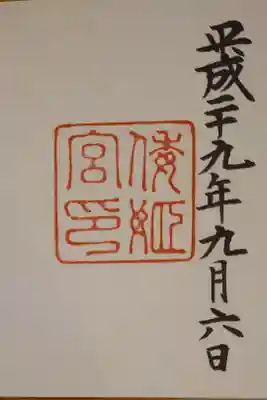 平成二十九年九月六日
倭姫
宮印